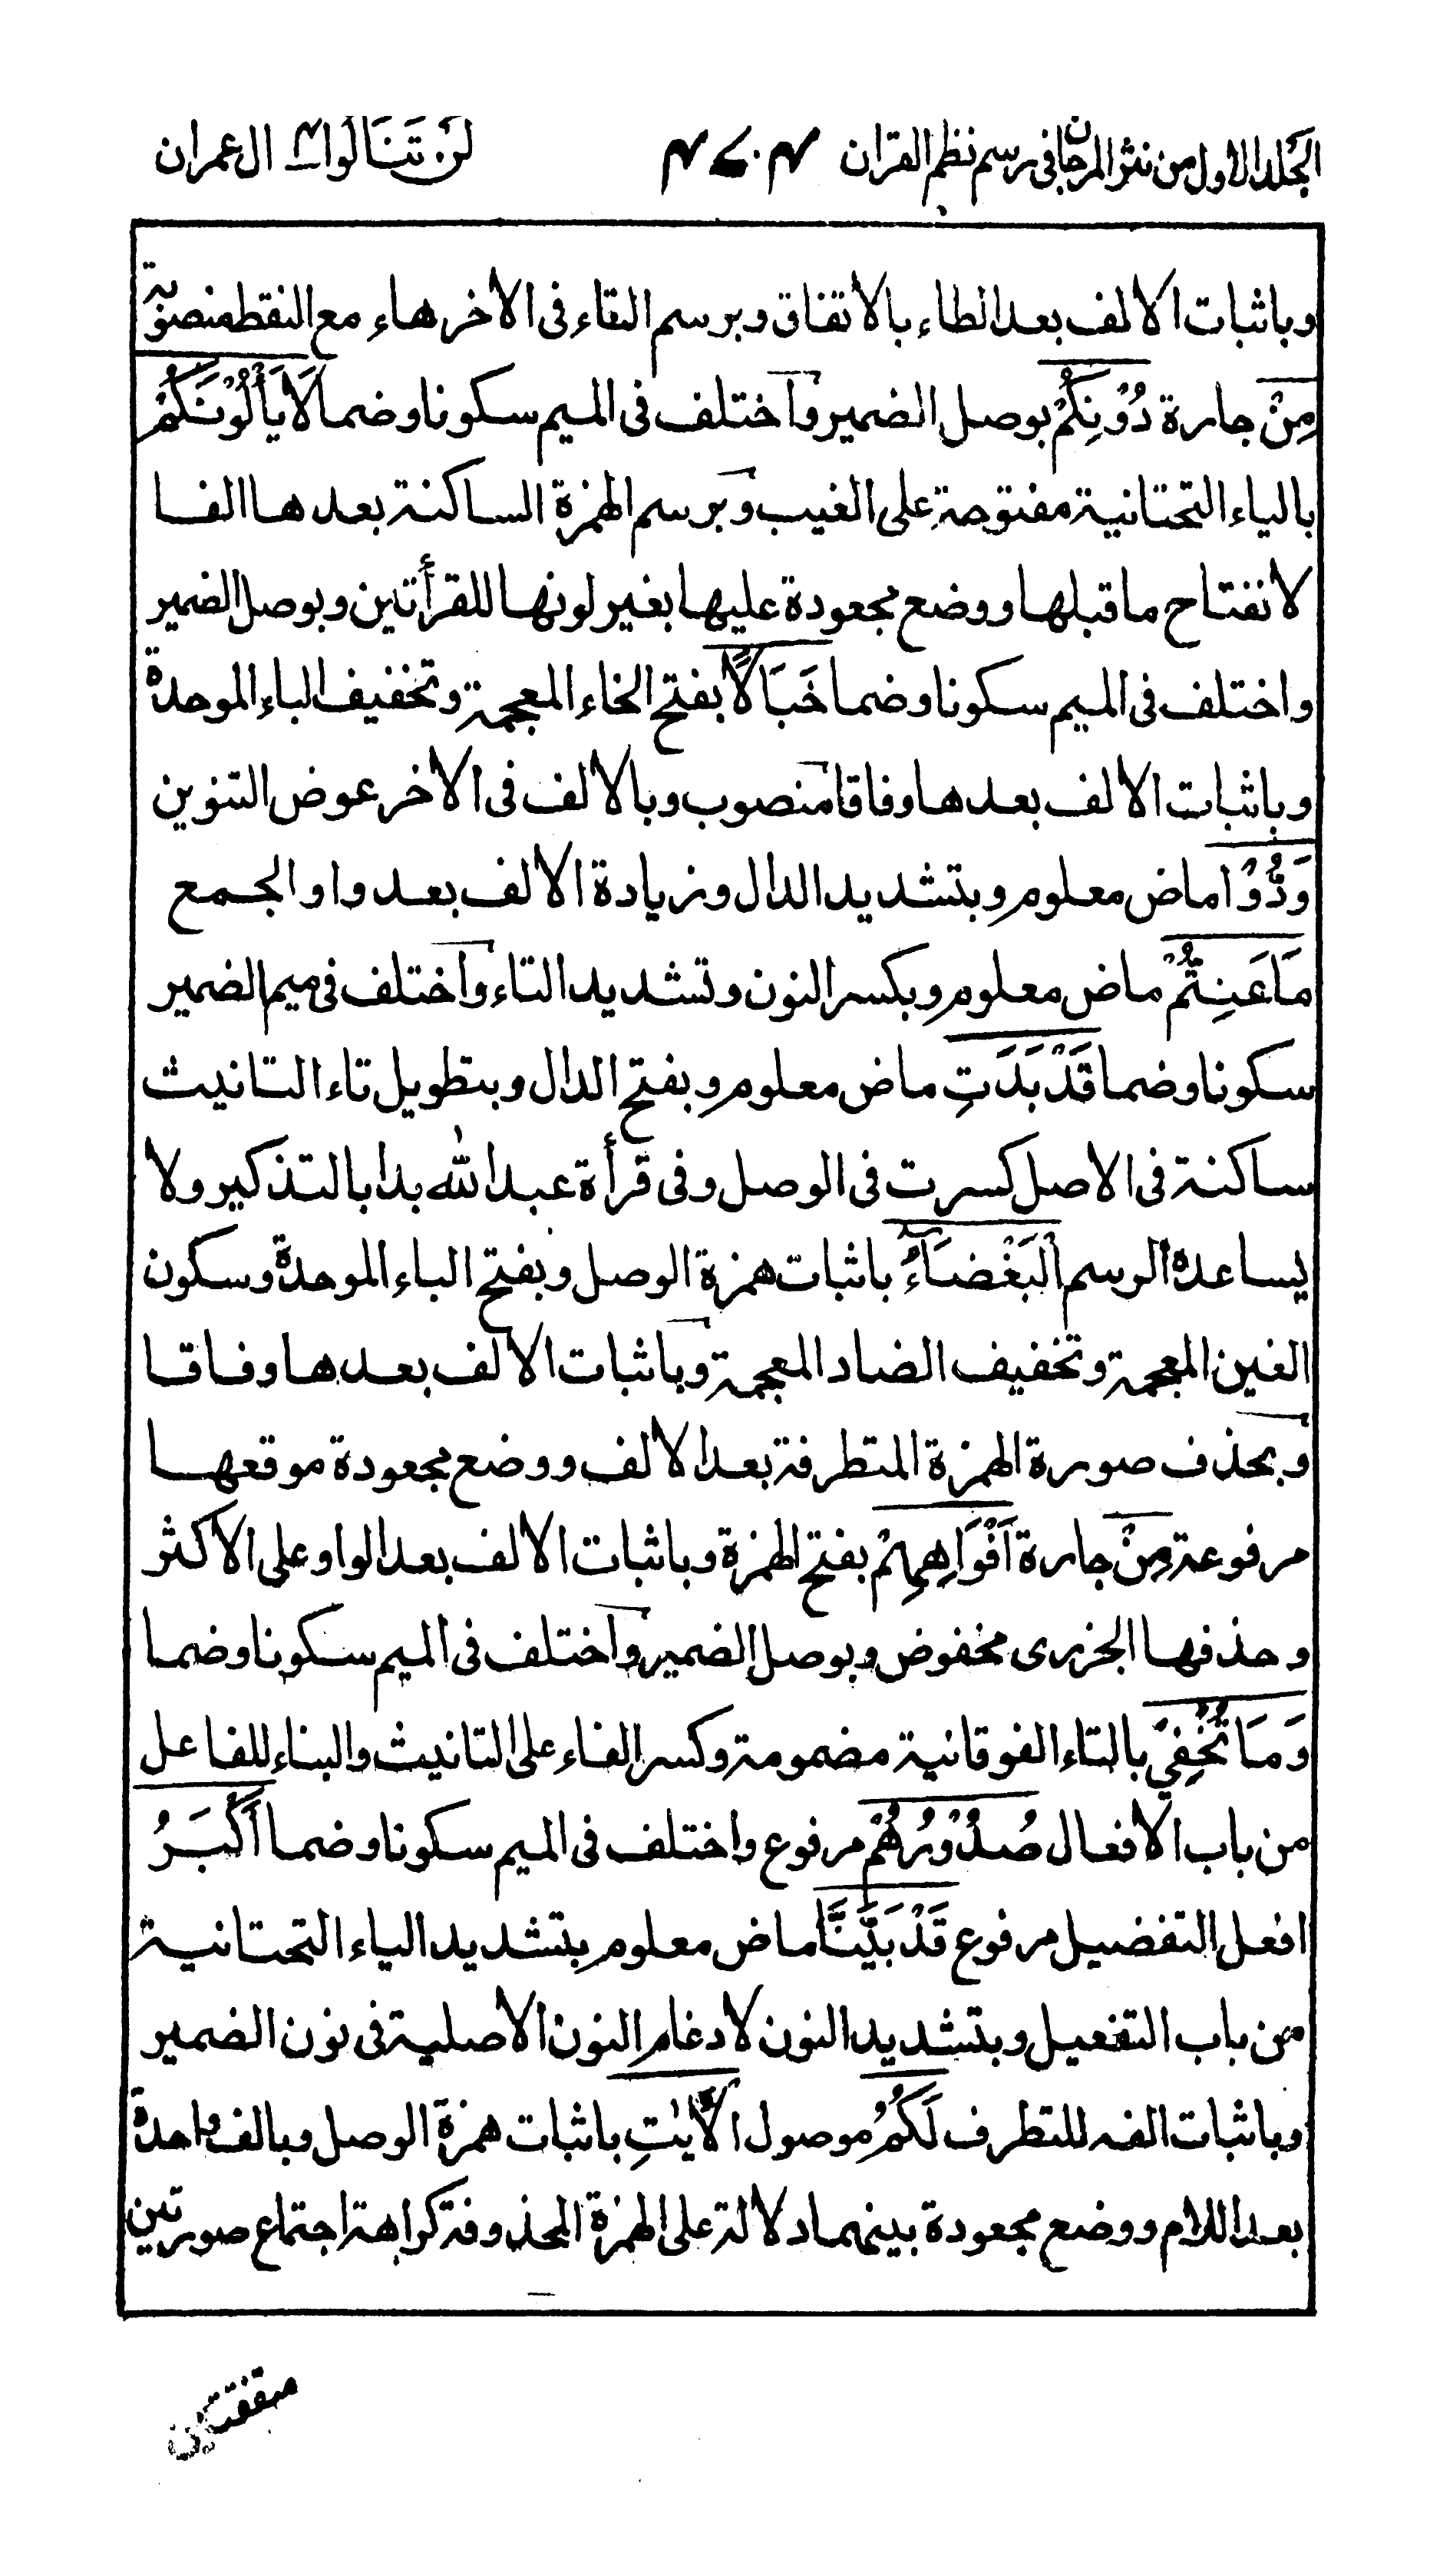 الجلد الاول من نثر المرجان فى رسم نظم القران ٤٠٤ لَنْ تَنَالُوا ٤ ال عمران
وباثبات الالف بعد الطاء بالاتفاق وبرسم التاء فى الاخر هاء مع النقط منصوبة
مِنْ جارة دُوْنِكُمْ بوصل الضمير واختلف فى الميم سكونا وضما لَا يَأْلُوْنَكُمْ
بالياء التحتانية مفتوحة على الغيب وبرسم الهمزة الساكنة بعدها الفا
لانفتاح ما قبلها ووضع مجعودة عليها بغير لونها للقرأتين وبوصل الضمير
واختلف فى الميم سكونا وضما خَبَالًا بفتح الخاء المعجمة وتخفيف الباء الموحدة
وباثبات الالف بعدها وفاقا منصوب وبالالف فى الاخر عوض التنوين
وَدُّوْا ماض معلوم وبتشديد الدال وزيادة الالف بعد واو الجمع
مَا عَنِتُّمْ ماض معلوم وبكسر النون وتشديد التاء واختلف فى ميم الضمير
سكونا وضما قَدْ بَدَتِ ماض معلوم وبفتح الدال وبتطويل تاء التانيث
ساكنة فى الاصل كسرت فى الوصل وفى قرأة عبد الله بدا بالتذكير ولا
يساعده الرسم الْبَغْضَاءُ باثبات همزة الوصل وبفتح الباء الموحدة وسكون
الغين المعجمة وتخفيف الضاد المعجمة وباثبات الالف بعدها وفاقا
وبحذف صورة الهمزة المتطرفة بعد الالف ووضع مجعودة موقعها
مرفوعة مِنْ جارة اَفْوَاهِهِمْ بفتح الهمزة وباثبات الالف بعد الواو على الاكثر
وحذفها الجزرى مخفوض وبوصل الضمير واختلف فى الميم سكونا وضما
وَمَا تُخْفِيْ بالتاء الفوقانية مضمومة وكسر الفاء على التانيث والبناء للفاعل
من باب الافعال صُدُوْرُهُمْ مرفوع واختلف فى الميم سكونا وضما اَكْبَرُ
افعل التفضيل مرفوع قَدْ بَيَّنَّا ماض معلوم بتشديد الياء التحتانية
من باب التفعيل وبتشديد النون لادغام النون الاصلية فى نون الضمير
وباثبات الفه للتطرف لَكُمُ موصول الْاٰيٰتِ باثبات همزة الوصل وبالف واحدة
بعد اللام ووضع مجعودة بينهما دلالة على الهمزة المحذوفة كراهة اجتماع صورتين
متفقتين